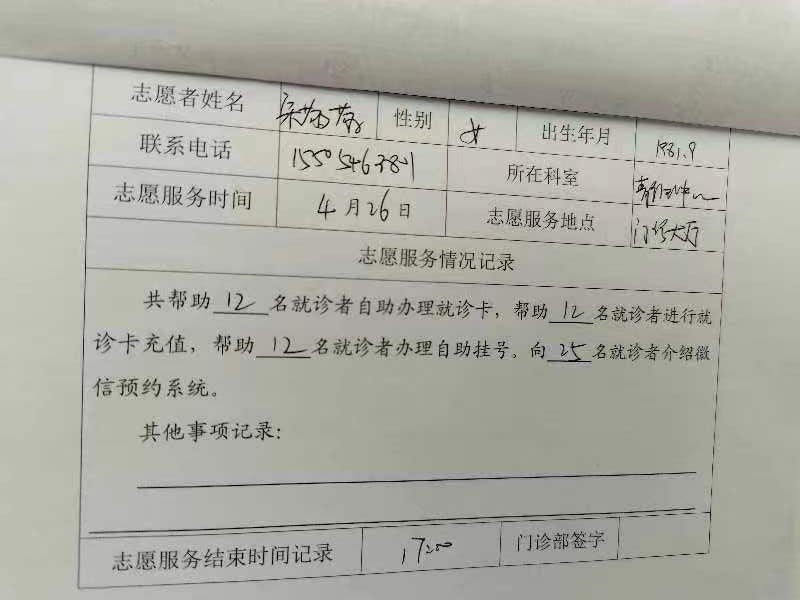 志愿者姓名 性别 女 出生年月 1981.9
联系电话 所在科室
志愿服务时间 4月26日 志愿服务地点 门诊大厅
志愿服务情况记录
共帮助12名就诊者自助办理就诊卡，帮助12名就诊者进行就
诊卡充值，帮助12名就诊者办理自助挂号。向25名就诊者介绍微
信预约系统。
其他事项记录：
志愿服务结束时间记录 17:00 门诊部签字